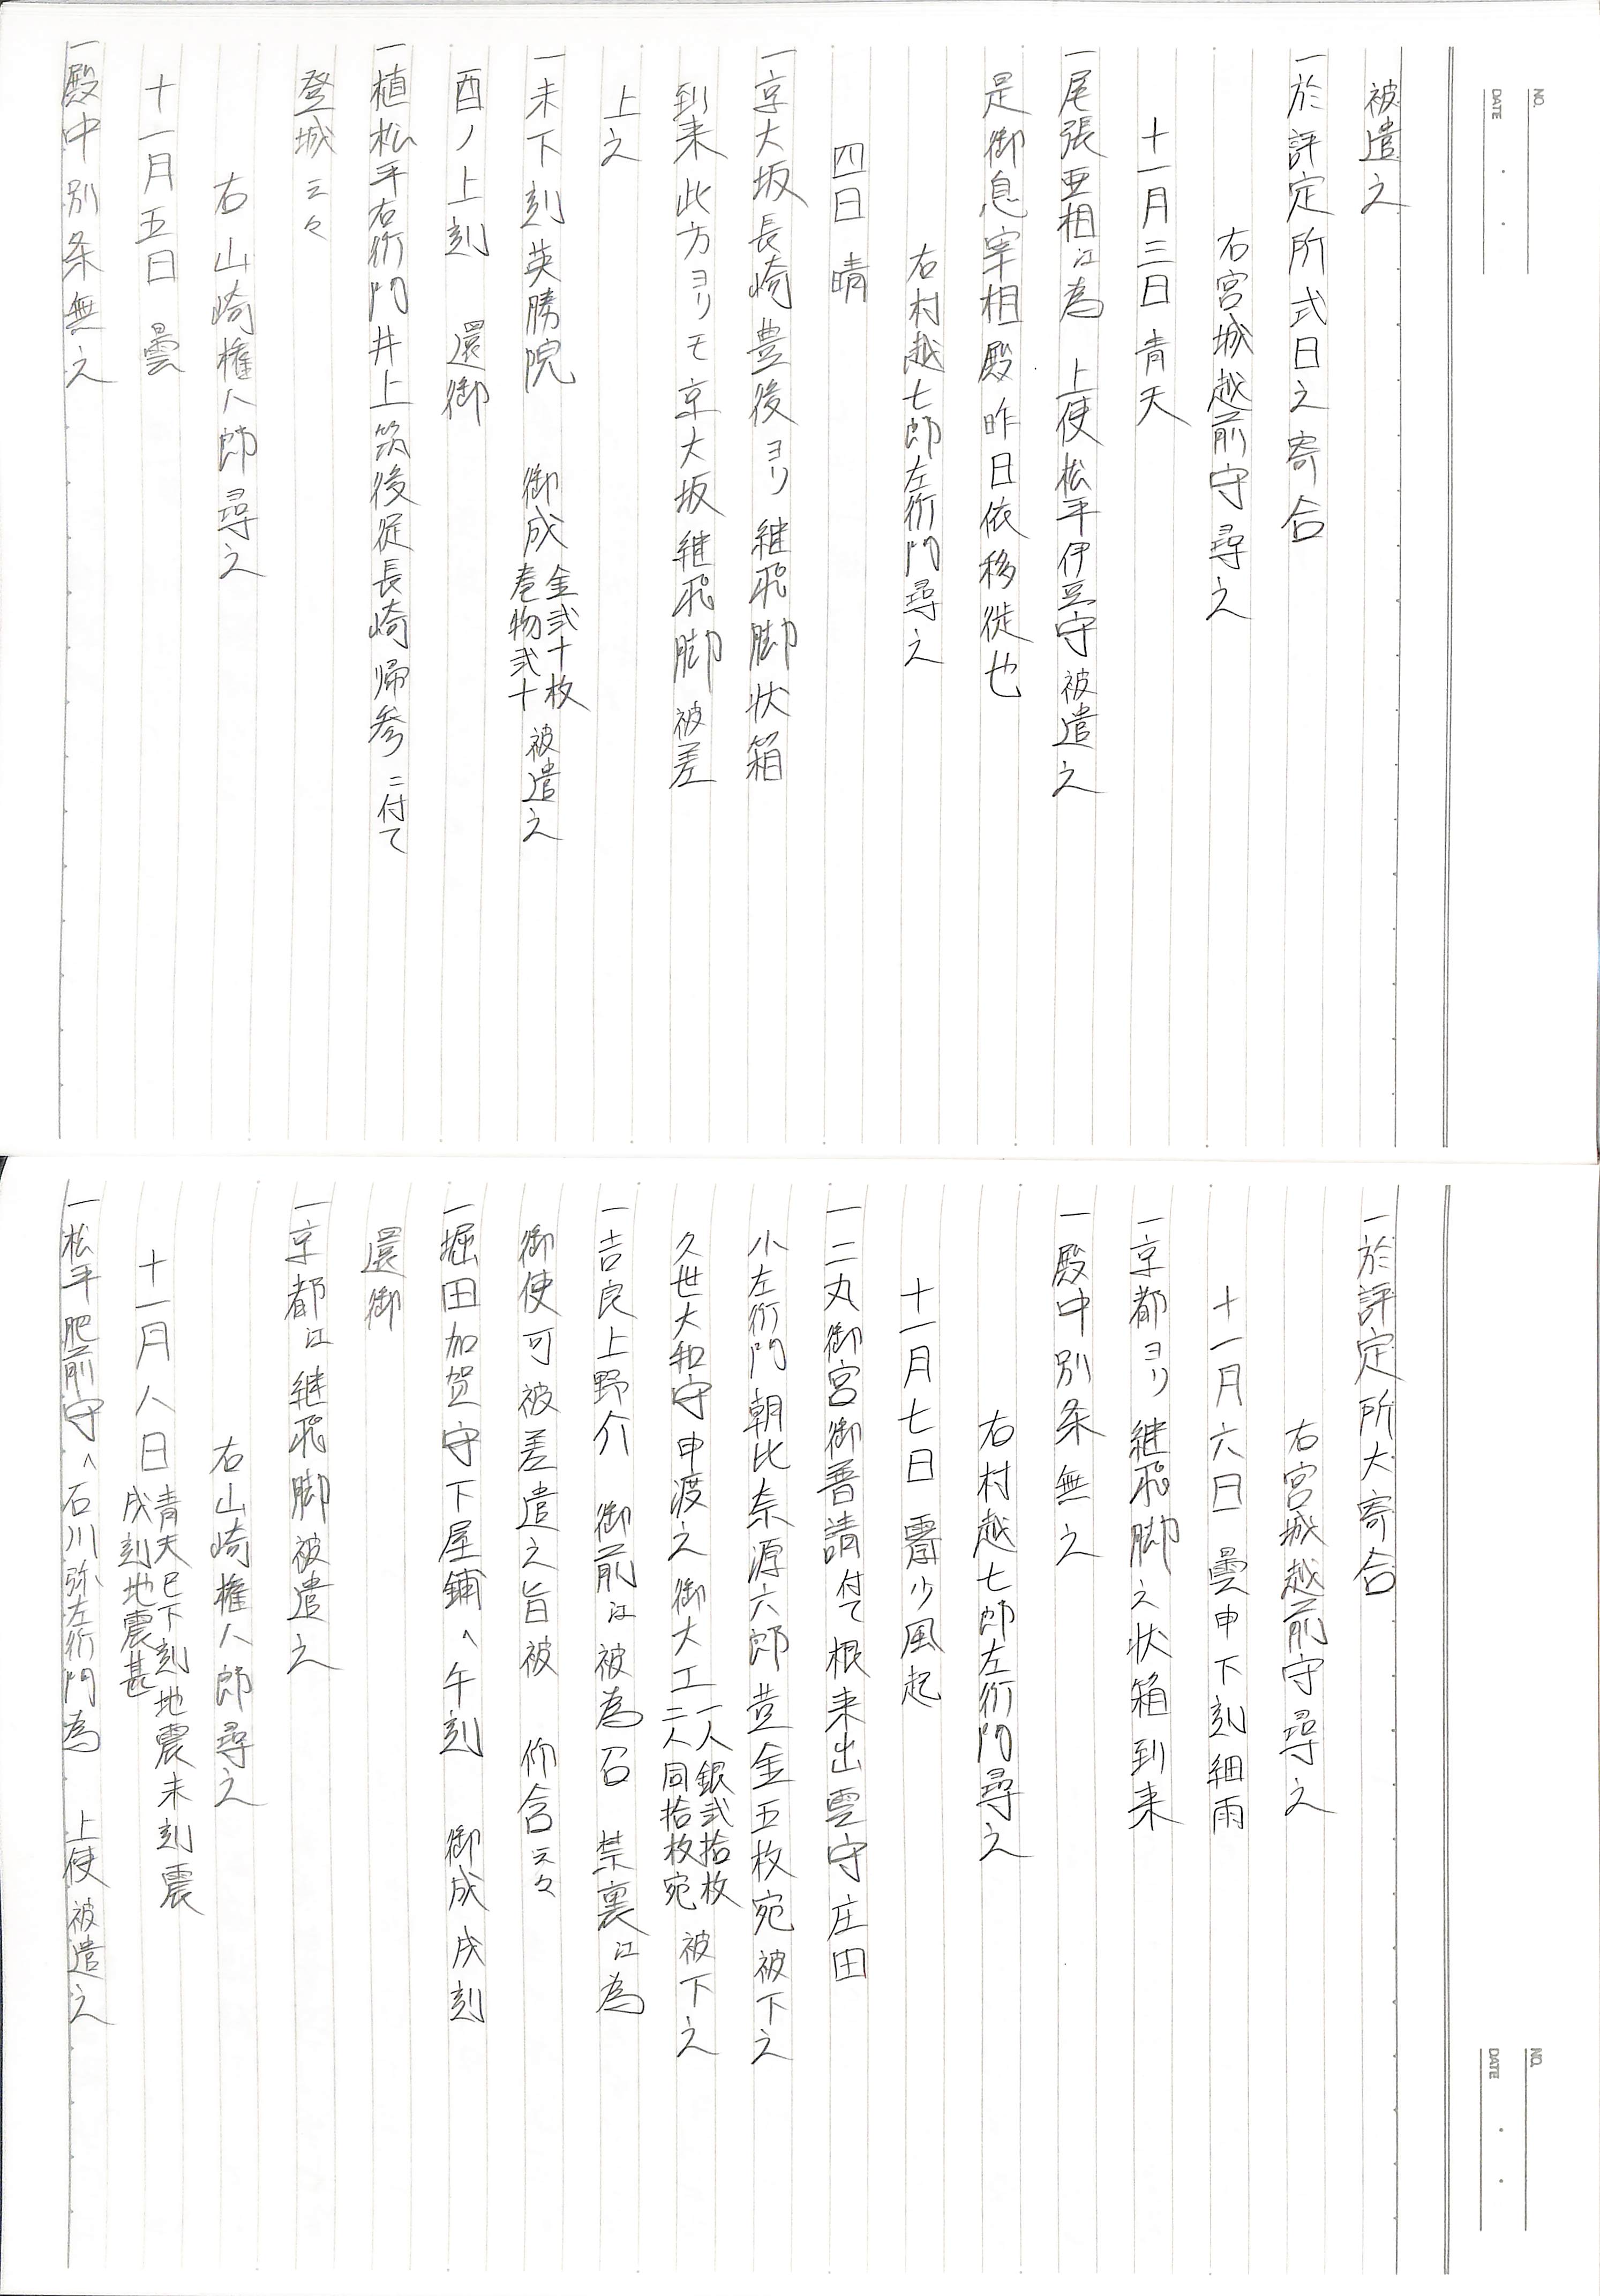 NO.
DATE
被遣之
一於評定所式日之寄合
右宮城越前守尋之
十一月三日 青天
一尾張亜相江為 上使松平伊豆守被遣之
是御息宰相殿昨日依移徙也
右村越七郎左衛門尋之
四日 晴
一京大坂長崎豊後ヨリ継飛脚状箱
到来此方ヨリモ京大坂継飛脚被差
上之
一未下刻英勝院 御成 金弐十枚 巻物弐十 被遣之
酉ノ上刻 還御
一植松平右衛門井上筑後従長崎帰参ニ付て
登城云々
右山崎権八郎尋之
十一月五日 曇
一殿中別条無之
NO.
DATE
一於評定所大寄合
右宮城越前守尋之
十一月六日 曇申下刻細雨
一京都ヨリ継飛脚之状箱到来
一殿中別条無之
右村越七郎左衛門尋之
十一月七日 霽少風起
一二丸御宮御普請付て根来出雲守庄田
小左衛門朝比奈源六郎並金五枚宛被下之
久世大和守申渡之御大工 一人銀弐拾枚 二人同拾枚宛 被下之
一吉良上野介 御前江被為召 禁裏江為
御使可被差遣之旨被 仰含云々
一堀田加賀守下屋鋪へ午刻 御成戌刻
還御
一京都江継飛脚被遣之
右山崎権八郎尋之
十一月八日 青天巳下刻地震未刻震 戌刻地震甚
一松平肥前守へ石川弥左衛門為 上使被遣之